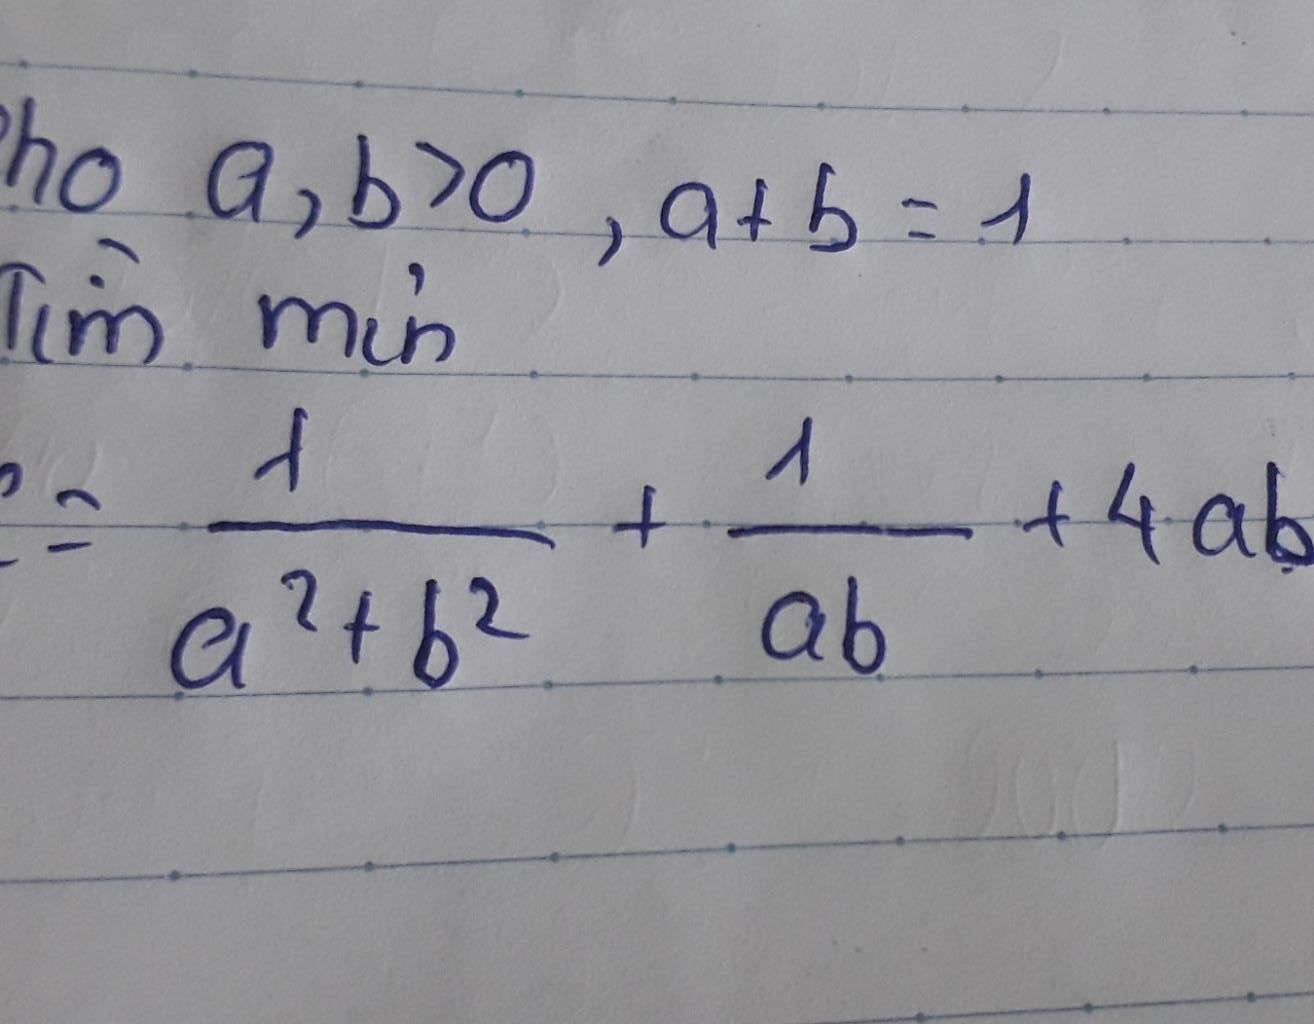 ho a, b>0, a+b = 1
Tìm min
= 1/(a²+b²) + 1/(ab) + 4ab